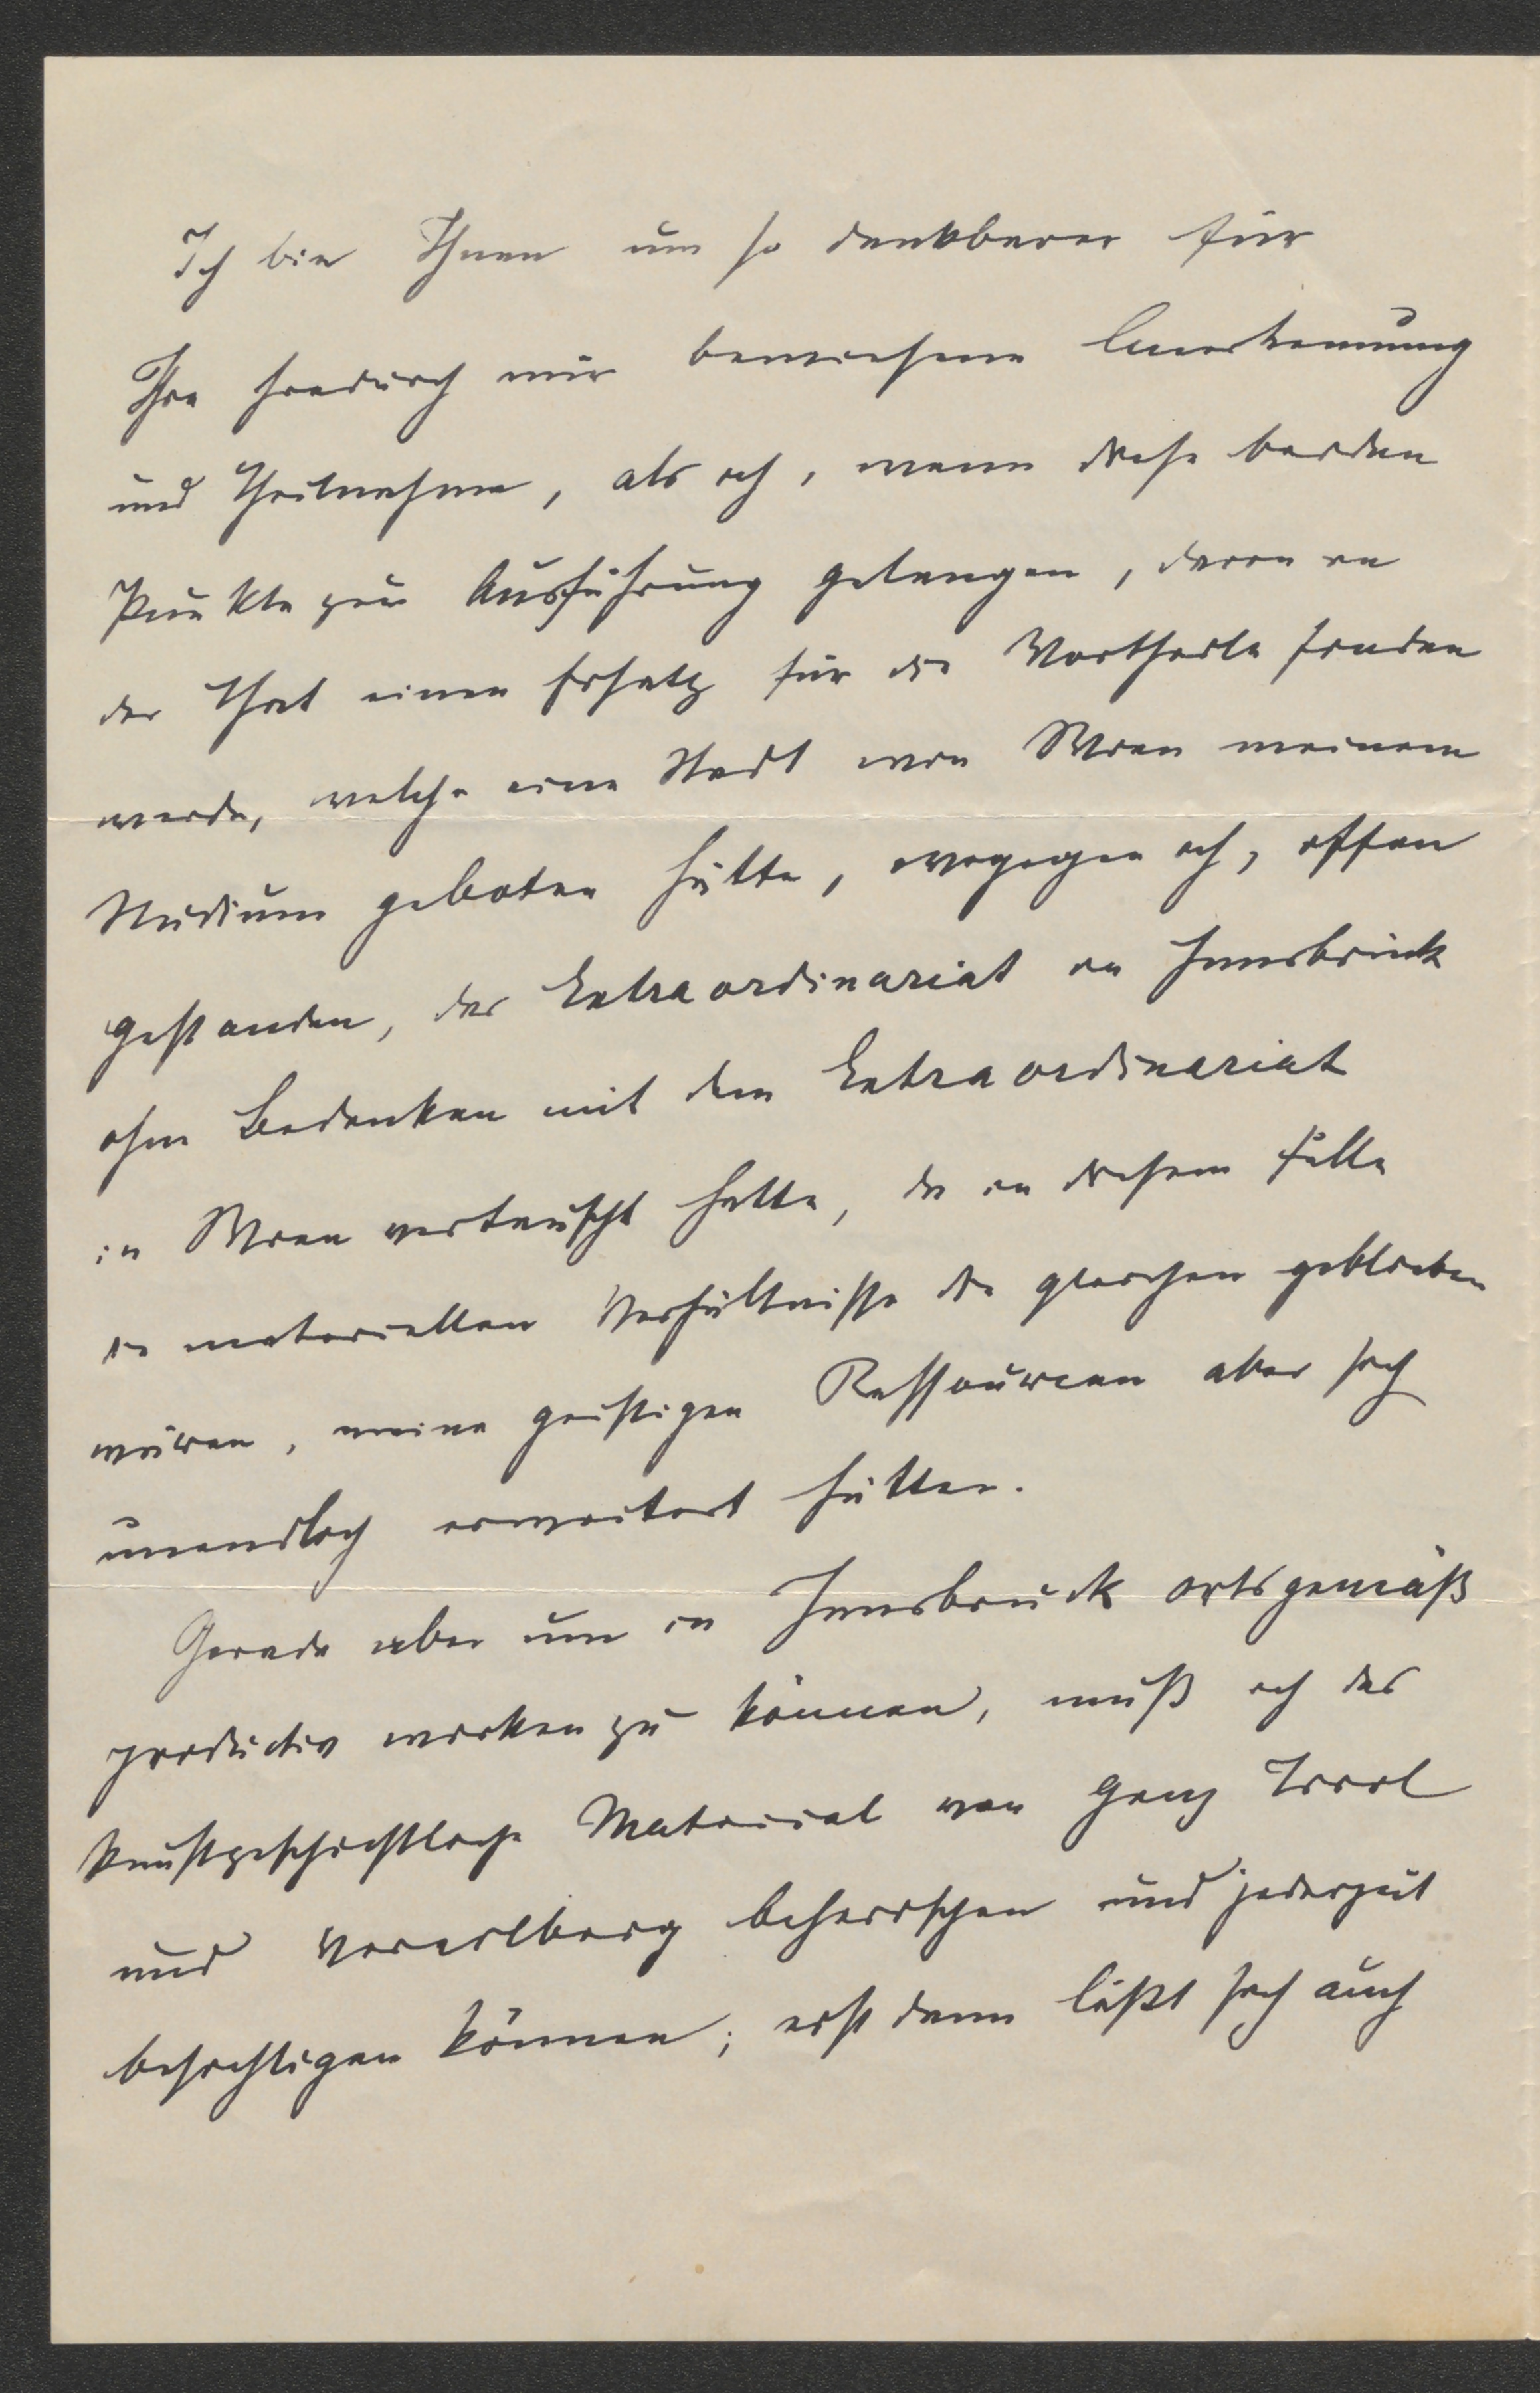 Ich bin Ihnen um so dankbarer für
Ihre hiedurch mir bewiesene Anerkennung
und Theilnahme, als ich, wenn diese beiden
Punkte zur Ausführung gelangen, darin in
der That einen Ersatz für die Vortheile finden
werde, welche eine Stadt wie Wien meinem
Studium geboten hätte, wogegen ich, offen
gestanden, das Extraordinariat in Innsbruck
ohne Bedenken mit dem Extraordinariat
in Wien vertauscht hätte, da in diesem Falle
die materiellen Verhältnisse die gleichen geblieben
wären, meine geistigen Ressourcen aber sich
unendlich erweitert hätten.
Gerade aber um in Innsbruck ortsgemäß
productiv wirken zu können, muß ich das
kunstgeschichtliche Material von ganz Tirol
und Vorarlberg beherrschen und jederzeit
besichtigen können; erst dann läßt sich auch